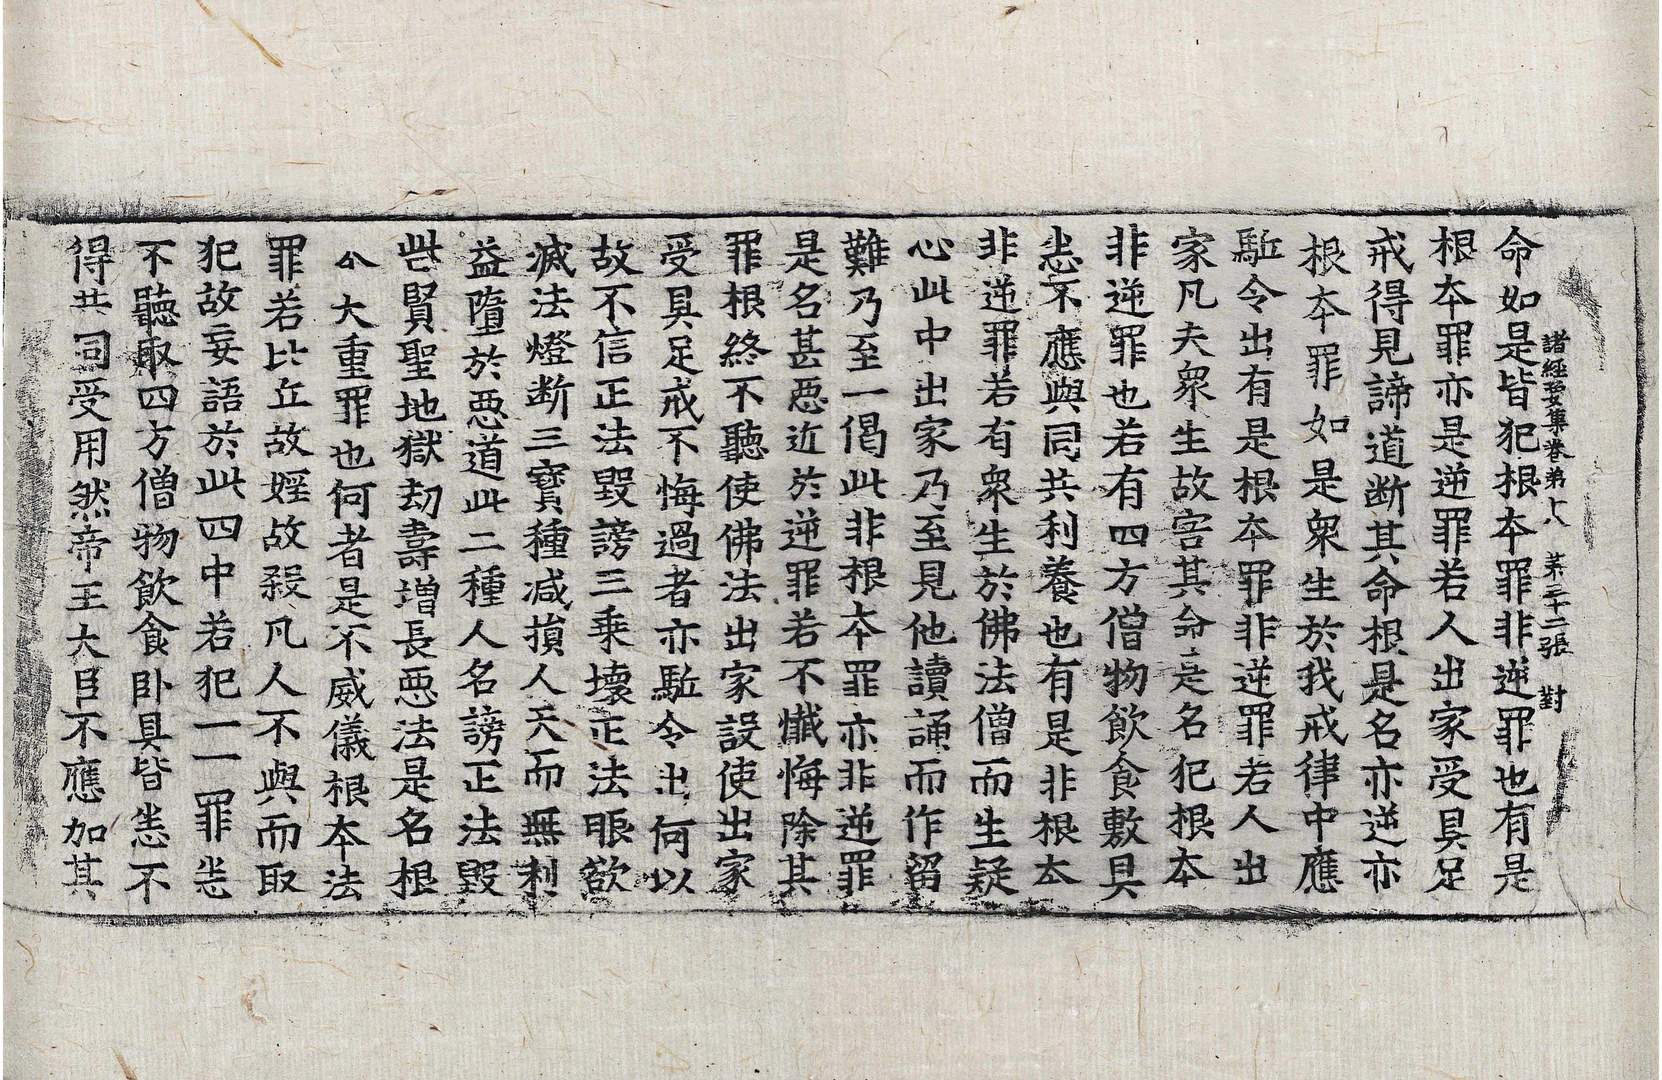 諸經要集卷第十八　第三十二張　對
命如是皆犯根本罪非逆罪也有是
根本罪亦是逆罪若人出家受具足
戒得見諦道断其命根是名亦逆亦
根本罪如是衆生於我戒律中應
駈令出有是根本罪非逆罪若人出
家凡夫衆生故害其命是名犯根本
非逆罪也若有四方僧物飲食敷具
悉不應與同共利養也有是非根本
非逆罪若有衆生於佛法僧而生疑
心此中出家乃至見他讀誦而作留
難乃至一偈此非根本罪亦非逆罪
是名甚惡近於逆罪若不懺悔除其
罪根終不聽使佛法出家設使出家
受具足戒不悔過者亦駈令出何以
故不信正法毀謗三乗壞正法眼欲
滅法燈断三寶種减損人天而無利
益墮於惡道此二種人名謗正法毀
呰賢聖地獄劫壽增長惡法是名根
大重罪也何者是不威儀根本法
罪若比丘故婬故殺凡人不與而取
犯故妄語於此四中若犯一一罪悉
不聽取四方僧物飲食卧具皆悉不
得共同受用然帝王大臣不應加其